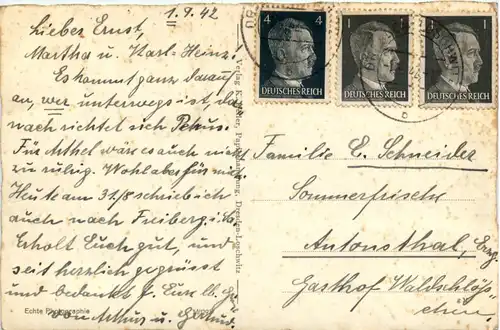 1.9.42
Lieber Ernst,
Martha u. Karl-Heinz!
Es kommt ganz darauf
an, wer unterwegs ist, da
nach richtet sich
Für Arthel wäre es auch nicht
zu ruhig. Wohl aber für mich.
Heute am 31/8 schrieb ich
auch nach Freiberg i. Sa.
Erholt Euch gut, und
seit herzlich gegrüsst
und bedankt f. Eure lb.
von Arthur u. Gertrud.
Echte Photographie
Verlag K. Papierhandlung, Dresden-Loschwitz
4 4
DEUTSCHES REICH
1 1
DEUTSCHES REICH
1 1
DEUTSCHES REICH
Familie E. Schneider
Sommerfrische
Antonsthal, Erzg.
Gasthof Waldschlöss
chen.